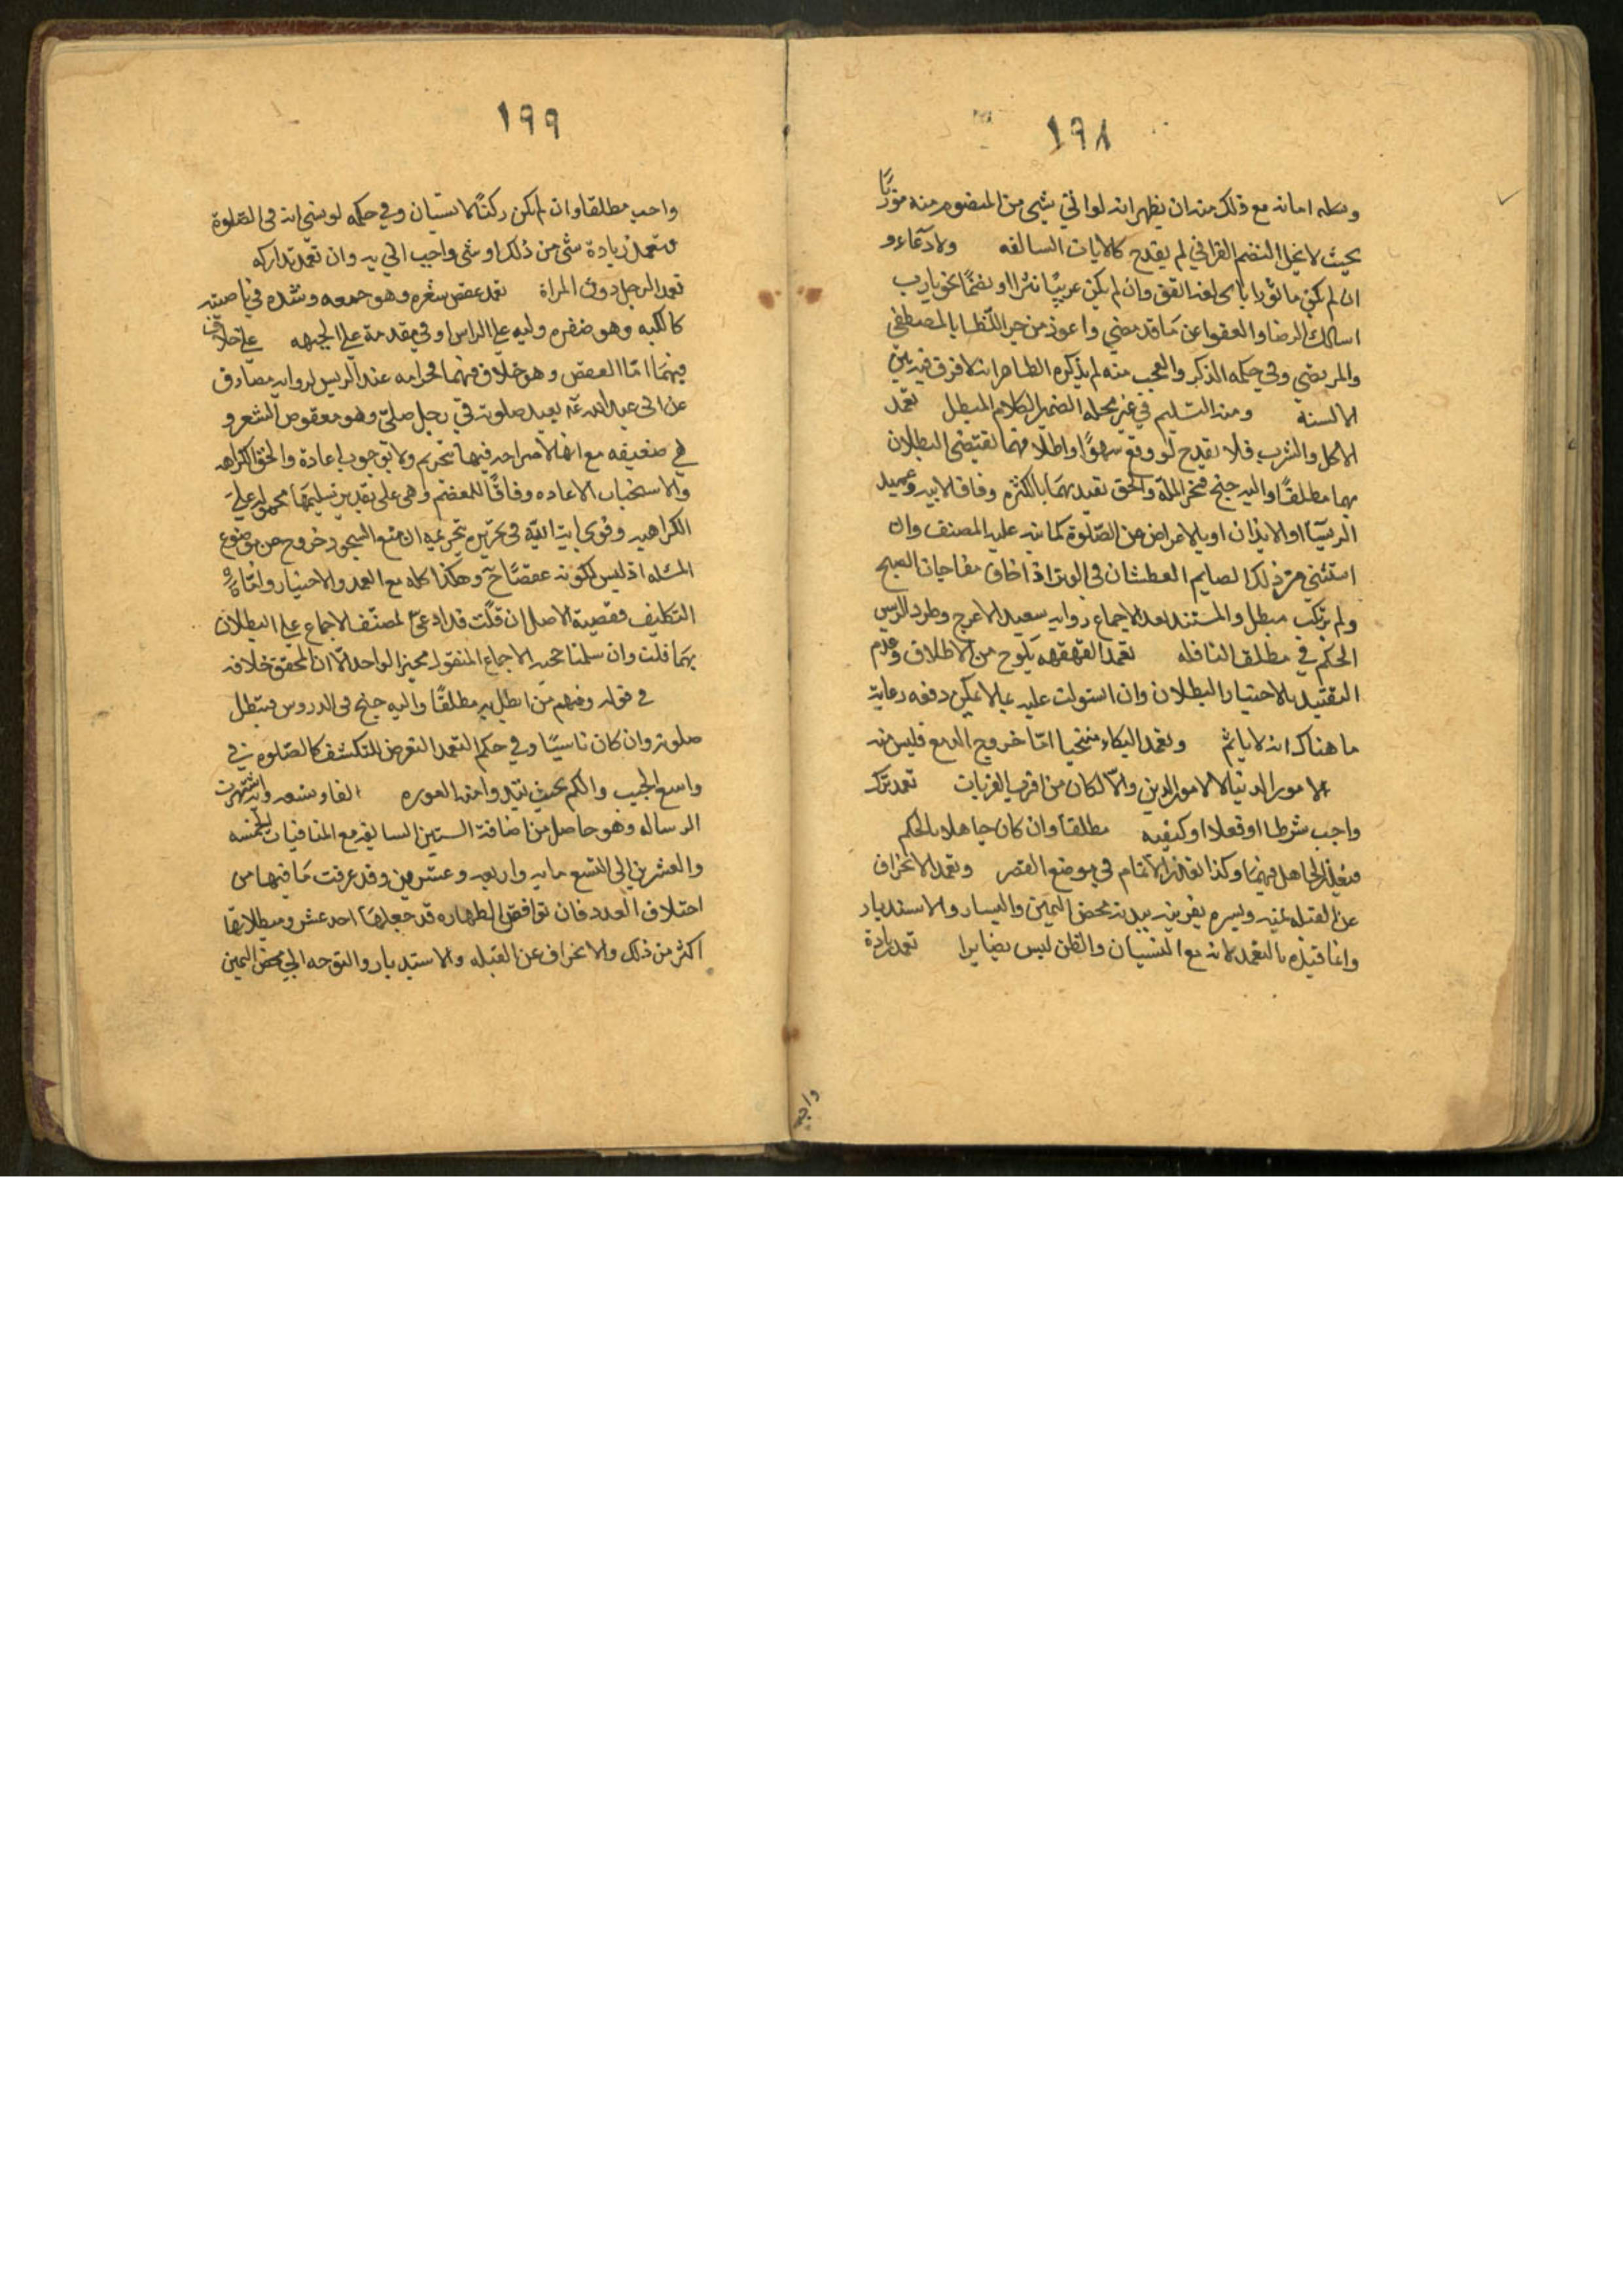 ١٩٨
وبطله امانه مع ذلك منه ان يظهر انه لو اتى بشى من المنضوم منه موزنًا
بحيث لا يخل النضم القرانى لم يقدح كالايات السالفه ولا دعاء و
ان لم يكن ماثورا باى لغه اتفق وان لم يكن عربيًا نثرا او نضمًا نحو يارب
اسالك الرضا والعفو عن ما قد مضى واعوذ من حر اللظا بالمصطفى
والمرتضى وفى حكمه الذكر والعجب منه لم يذكره الظاهر انه لا فرق فيه بين
الالسنة ومنه التسليم فى غير محله الضمير للكلام المبطل تعمد
الاكل والشرب فلا يقدح لو وقع سهوًا واطلاقهما يقتضى البطلان
بهما مطلقًا واليه جنح فخر المله والحق تقييدهما بالكثره وفاقا لابيه وعميد
الرؤسا او الايذان او بالاعراض عن الصلوة كما نبه عليه المصنف وان
استثنى من ذلك الصايم العطشان فى الوتر اذا خاف مفاجات الصبح
ولم يرتكب مبطل والمستند بعد الاجماع روايه سعيد الاعرج وطرد الريس
الحكم فى مطلق النافله تعمد القهقهه يلوح من الاطلاق وعدم
التقييد بالاختيار البطلان وان استولت عليه بما لا يمكن دفعه رعاية
ما هناك انه لا ياثم وتعمد البكاء منتحبا اما خروج الدمع فليس منه
لامور الدنيا لا لامور الدين والا لكان من اقرب القربات تعمد ترك
واجب شرطا او فعلا او كيفيه مطلقا وان كان جاهلا بالحكم
فيعذر الجاهل فيهما وكذا تعذر الاتمام فى موضع القصر وتعمد الانحراف
عن القبله يمنه ويسره بقرينه ببدنه محض اليمين واليسار والاستدبار
وانما قيده بالتعمد لانه مع النسيان والظن ليس بضاير تعمد زيادة
واجب
١٩٩
واجب مطلقا وان لم يكن ركنًا لا بنسيان وفى حكمه لو نسى انه فى الصلوة
فتعمد زيادة شى من ذلك او شى واجب اتى به وان تعمد تداركه
تعمد الرجل دون المراة تعمد عقص شعره وهو جمعه وشده فى ناصيته
كالكبه وهو ضفره وليه على الراس او فى مقدمة على الجبهه على خلاف
فيهما اما العقص وهو خلاف فيهما فحرامه عند الريس لروايه مصادف
عن ابى عبد الله ع يعيد صلوته فى رجل صلى وهو معقوص الشعر و
هى ضعيفه مع انها لا صراحه فيها بتحريم ولا بوجوب اعادة والحق الكراهه
والاستحباب الاعاده وفاقًا للمعضم وهى على تقدير تسليمها محموله على
الكراهيه وقوى ايت الله فى تحريره تحريمه ان منع السجود خروج عن موضوع
المسئله اذ ليس لكونه عقصًا ح وهكذا كله مع العمد والاختيار واما
التكليف فقضية الاصل ان قلت قد ادعى المصنف الاجماع على البطلان
بهما قلت وان سلمنا حجيه الاجماع المنقول بخبر الواحد الا ان المحقق خلافه
فى قوله ومنهم من ابطل به مطلقًا واليه جنح فى الدروس فتبطل
صلوته وان كان ناسيًا وفى حكم التعمد التعرض للتكشف كالصلوة فى
واسع الجيب والكم بحيث تبدوا منه العوره الفا وتسعه وبه اشتهرت
الرساله وهو حاصل من اضافة الستين السابقه مع المنافيات الخمسه
والعشرين الى التسع مايه واربعه وعشرين وقد عرفت ما فيها من
اختلاف العدد فان نواقض الطهاره قد جعلها احد عشر ومبطلاتها
اكثر من ذلك والانحراف عن القبله والاستدبار والتوجه الى محض اليمين